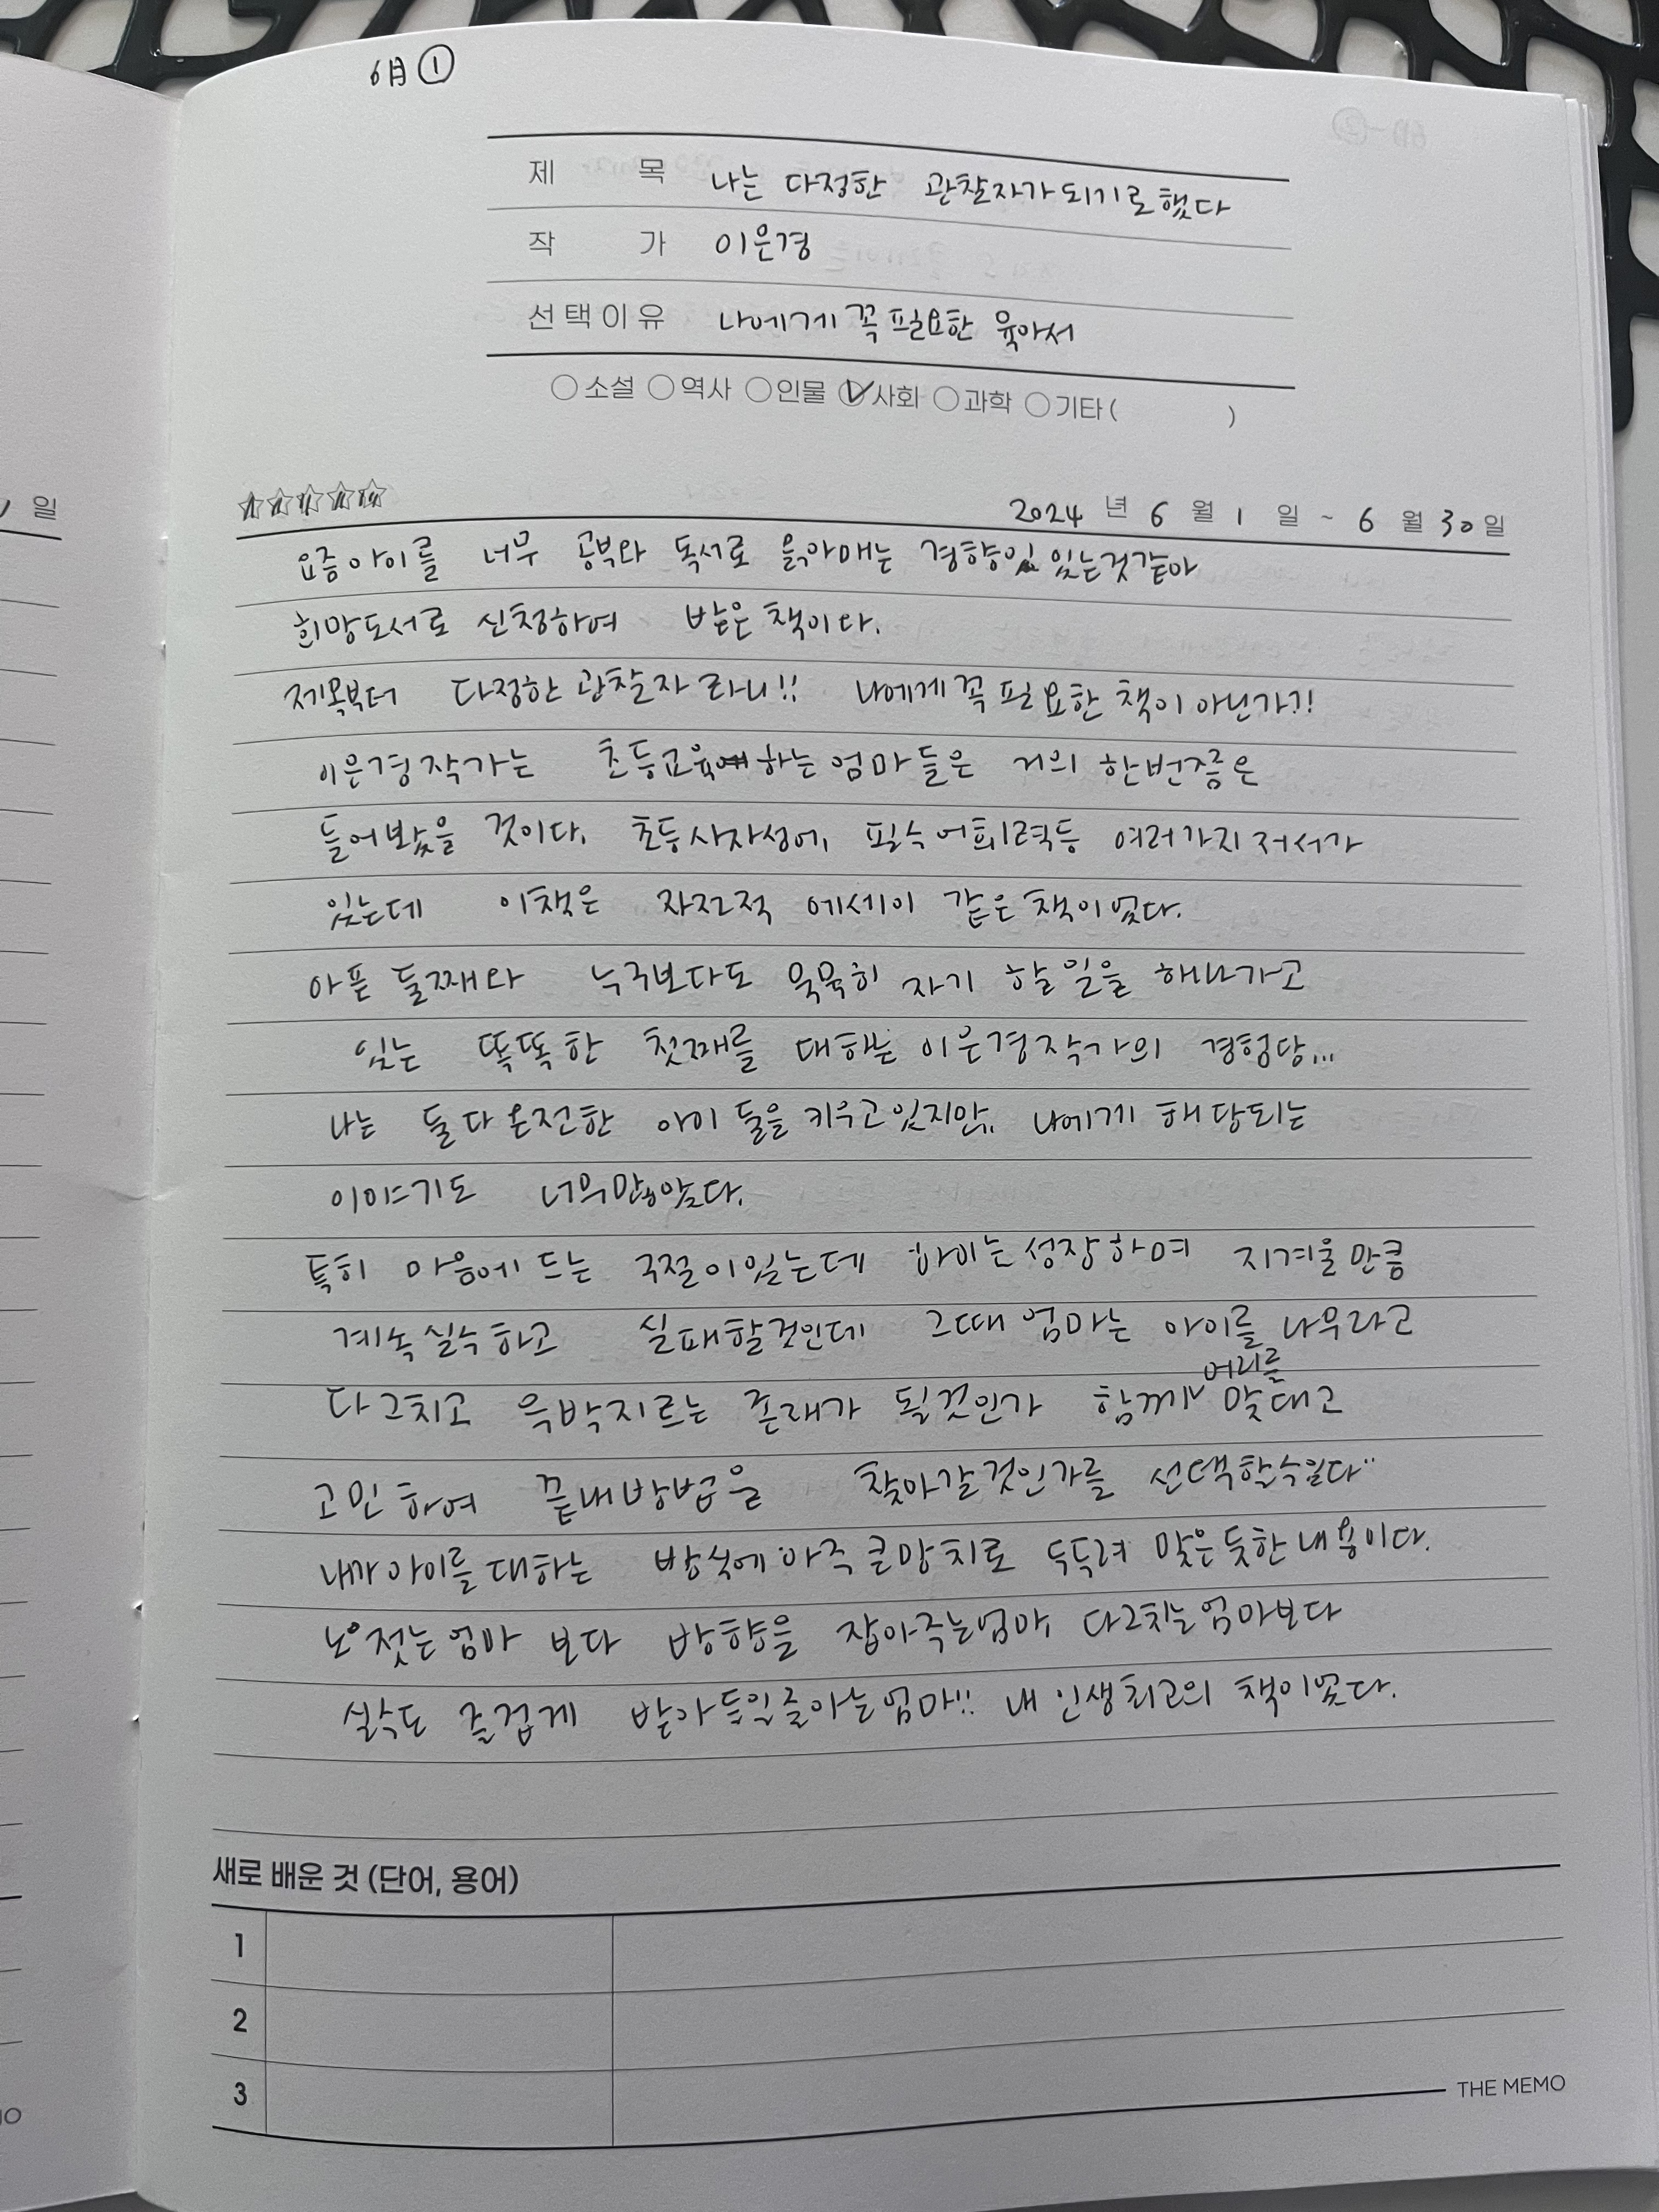 6月 ①
제 목 나는 다정한 관찰자가 되기로 했다
작 가 이은경
선택이유 나에게 꼭 필요한 육아서
소설 역사 인물 사회 과학 기타 ( )
일
2024 년 6 월 1 일 ~ 6 월 30 일
요즘 아이를 너무 공부와 독서로 옭아매는 경향이 있는것같아
희망도서로 신청하여 받은 책이다.
제목부터 다정한 관찰자 라니!! 나에게 꼭 필요한 책이 아닌가?!
이은경 작가는 초등교육 하는 엄마들은 거의 한번쯤은
들어봤을 것이다. 초등사자성어, 필수어휘력등 여러가지 저서가
있는데 이책은 자전적 에세이 같은 책이었다.
아픈 둘째와 누구보다도 묵묵히 자기 할 일을 해나가고
있는 똑똑한 첫째를 대하는 이은경 작가의 경험담...
나는 둘다 온전한 아이 둘을 키우고 있지만, 나에게 해당되는
이야기도 너무 많았다.
특히 마음에 드는 구절이 있는데 "아이는 성장하며 지겨울만큼
계속 실수하고 실패할것인데 그때 엄마는 아이를 나무라고
다그치고 윽박지르는 존재가 될것인가 함께 머리를 맞대고
고민하여 끝내 방법을 찾아갈것인가를 선택할수있다"
내가 아이를 대하는 방식에 아주 큰망치로 두둑려 맞은 듯한 내용이다.
노 젓는 엄마 보다 방향을 잡아주는 엄마, 다그치는 엄마보다
실수도 즐겁게 받아들일줄아는 엄마!! 내 인생 최고의 책이었다.
새로 배운 것 (단어, 용어)
1
2
3
THE MEMO